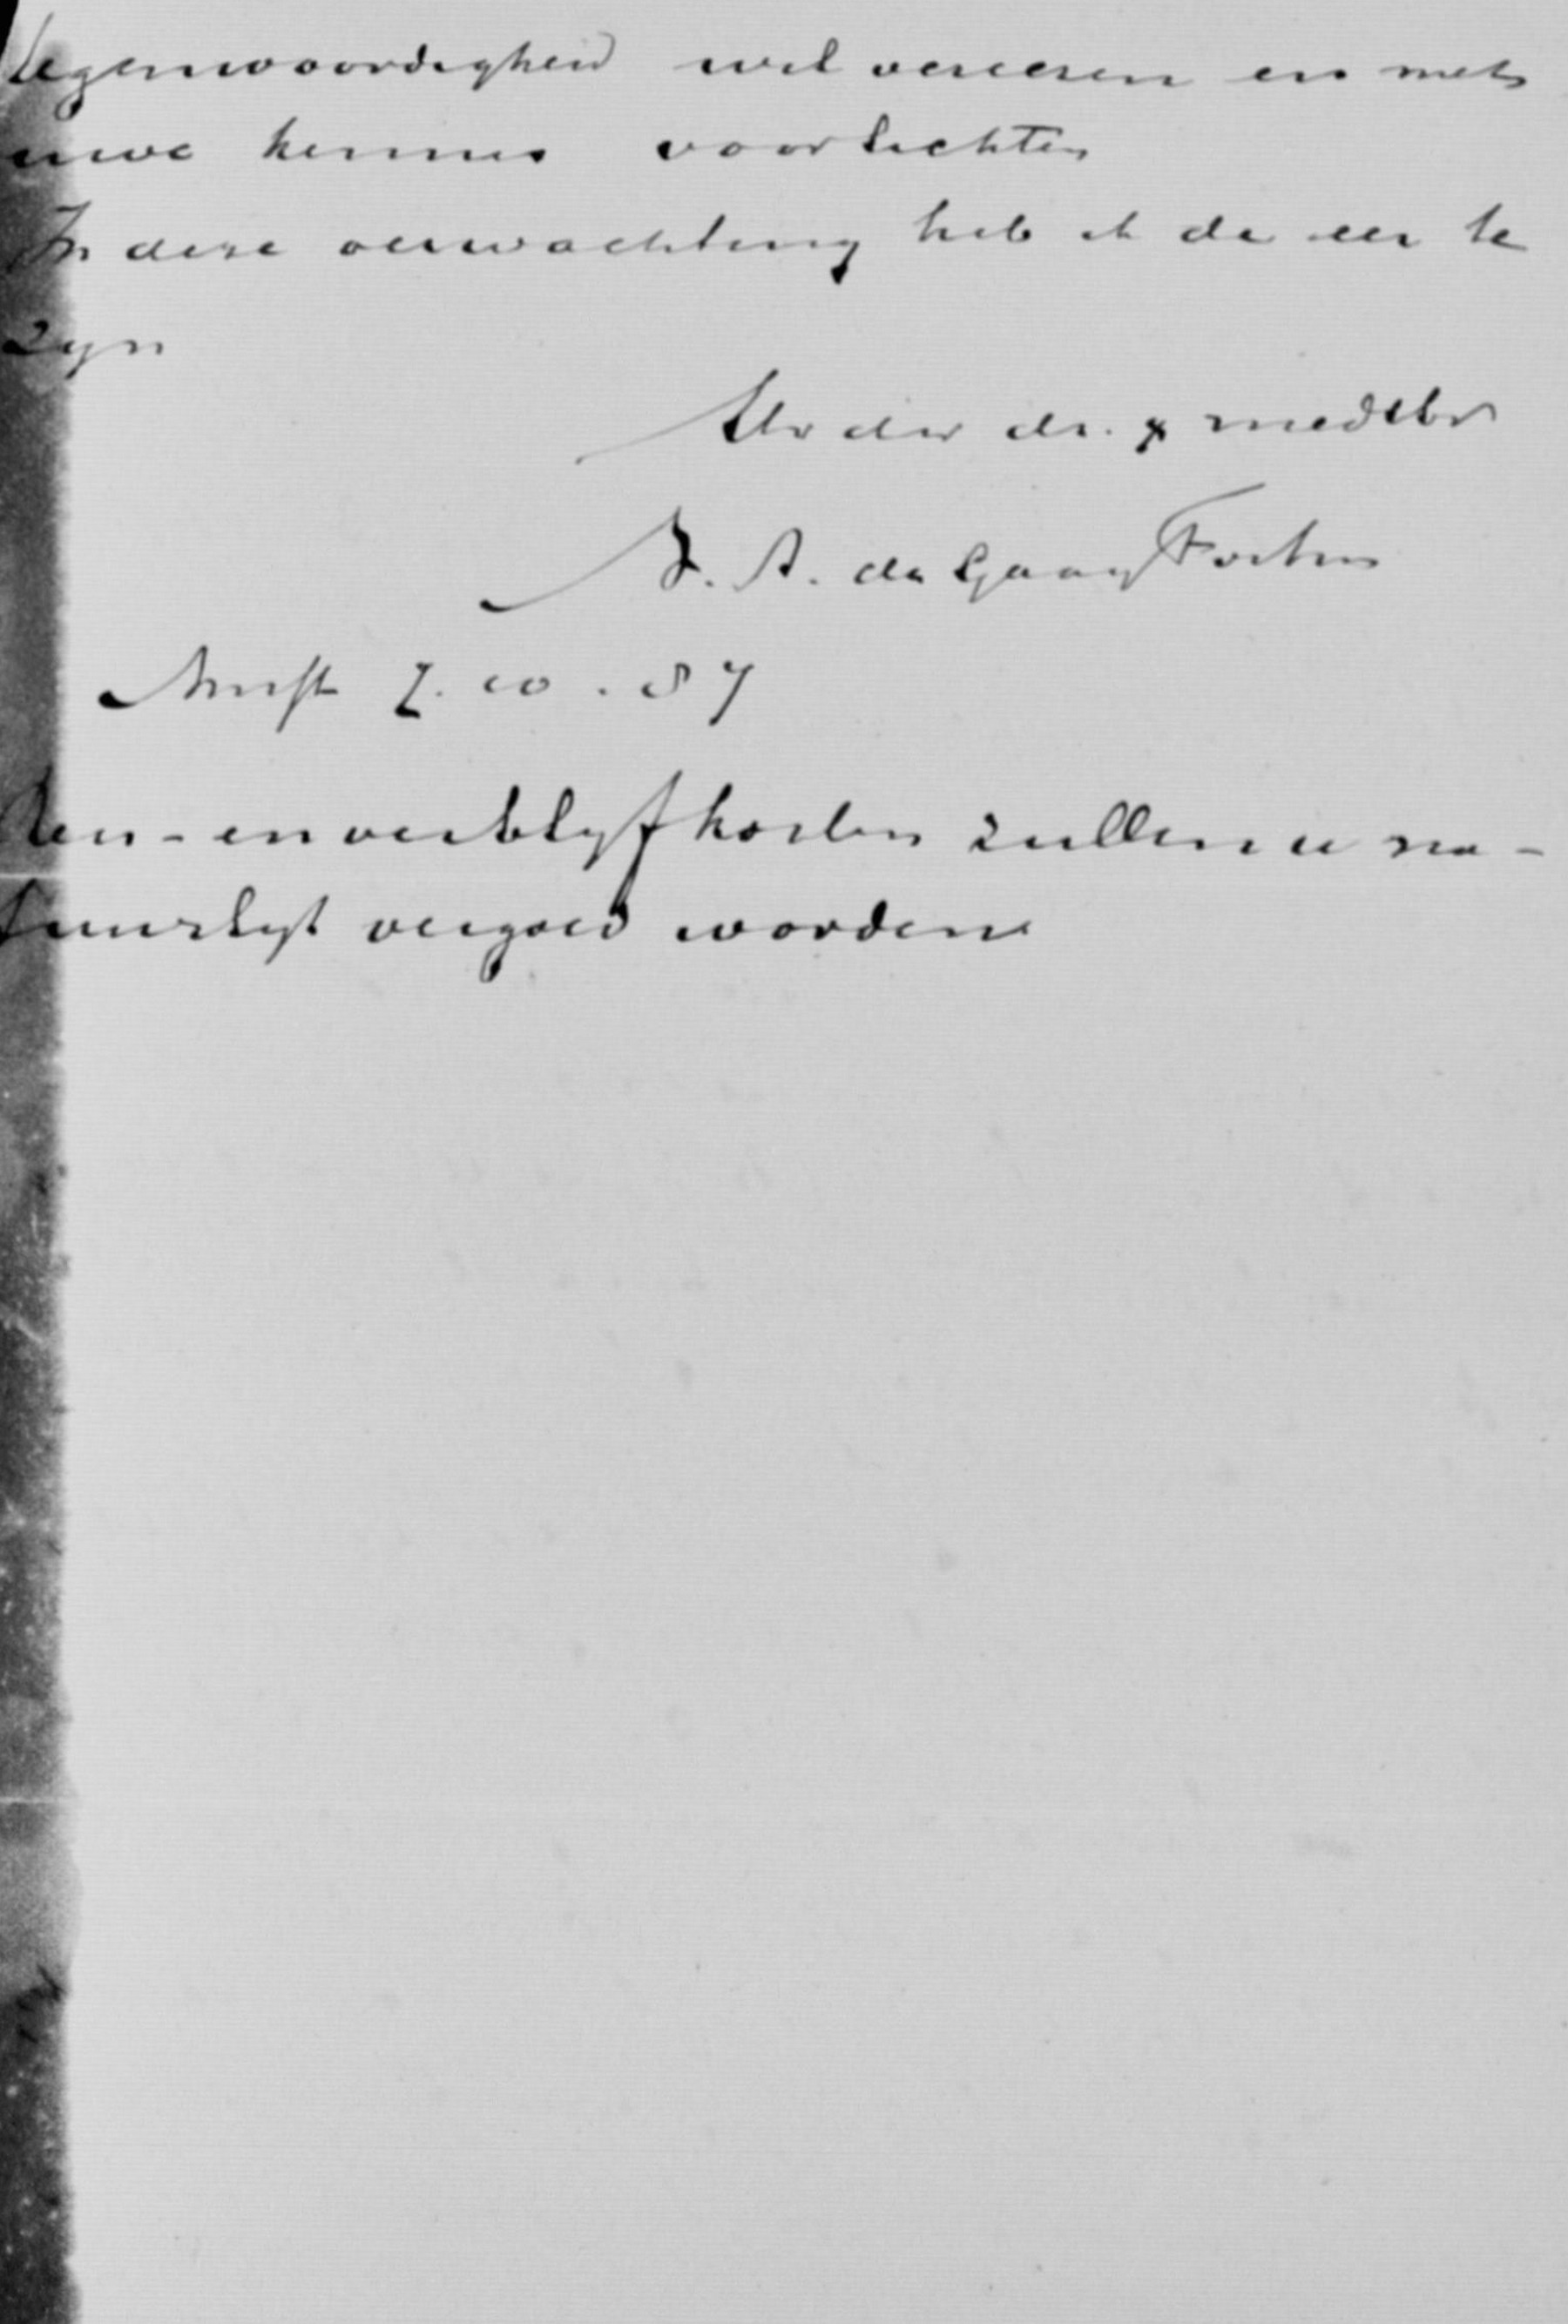 tegenwoordigheid wil vereeren en met
uwe kennis voorlichten
In deze verwachting heb ik de eer te
zyn
Uw dw dr. & medebr
J. A. de Gaay Fortman
Amst 7.10.87
Reis- en verblyfkosten zullen u na-
tuurlyk vergoed worden